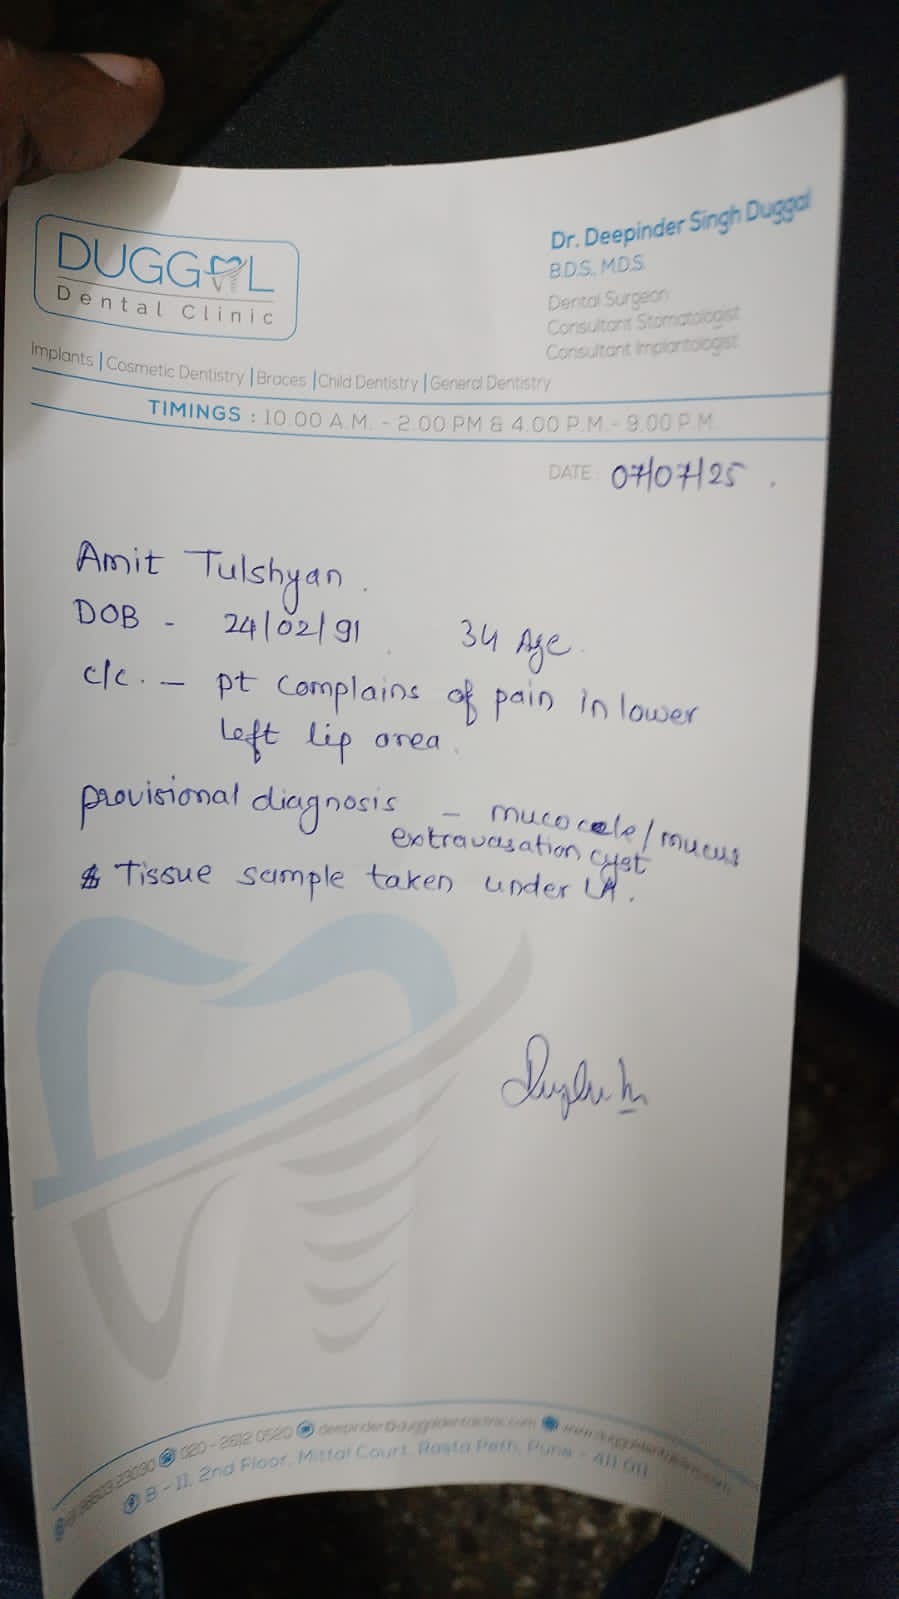 DUGGAL
Dental Clinic
Dr. Deepinder Singh Duggal
B.D.S., M.D.S.
Dental Surgeon
Consultant Stomatologist
Consultant Implantologist
Implants | Cosmetic Dentistry | Braces | Child Dentistry | General Dentistry
TIMINGS : 10.00 A.M. - 2.00 PM & 4.00 P.M. - 9.00 P.M.
DATE: 07/07/25
Amit Tulshyan.
DOB - 24/02/91 34 Age.
c/c. - pt complains of pain in lower
left lip area.
provisional diagnosis - mucocele/mucus
extravasation cyst
Tissue sample taken under LA.
020-2612 0520 deepinder@duggaldentalclinic.com www.duggaldentalclinic.com
B - 11, 2nd Floor, Mittal Court, Rasta Peth, Pune - 411 011